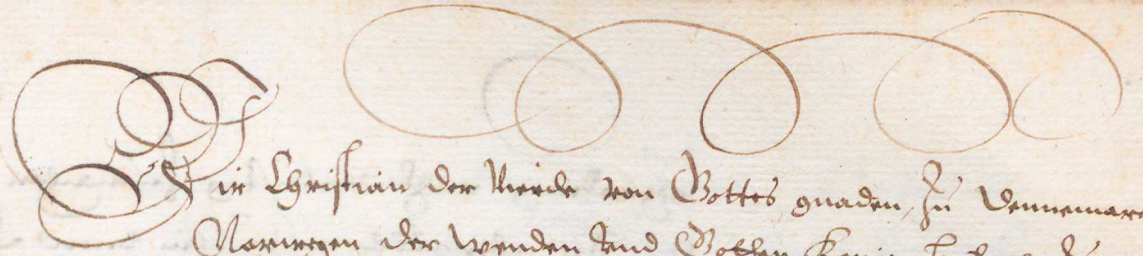 Wir Christian der Vierde von Gottes gnaden, Zu Dennemarc
Norwegen der Wenden vnd Gotten König